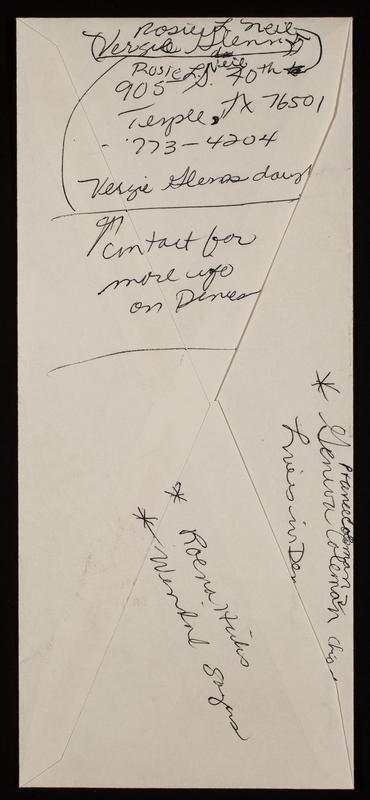 Rosie L Neil
Vergie Glenn
Rosie L. Neil
905 - S. 40th
Temple, TX 76501
773-4204
Vergie Glenns daug
contact for
more info
on Denies
* Geneva Coleman
Lives in Den
* Roena
* Wendal Sayers